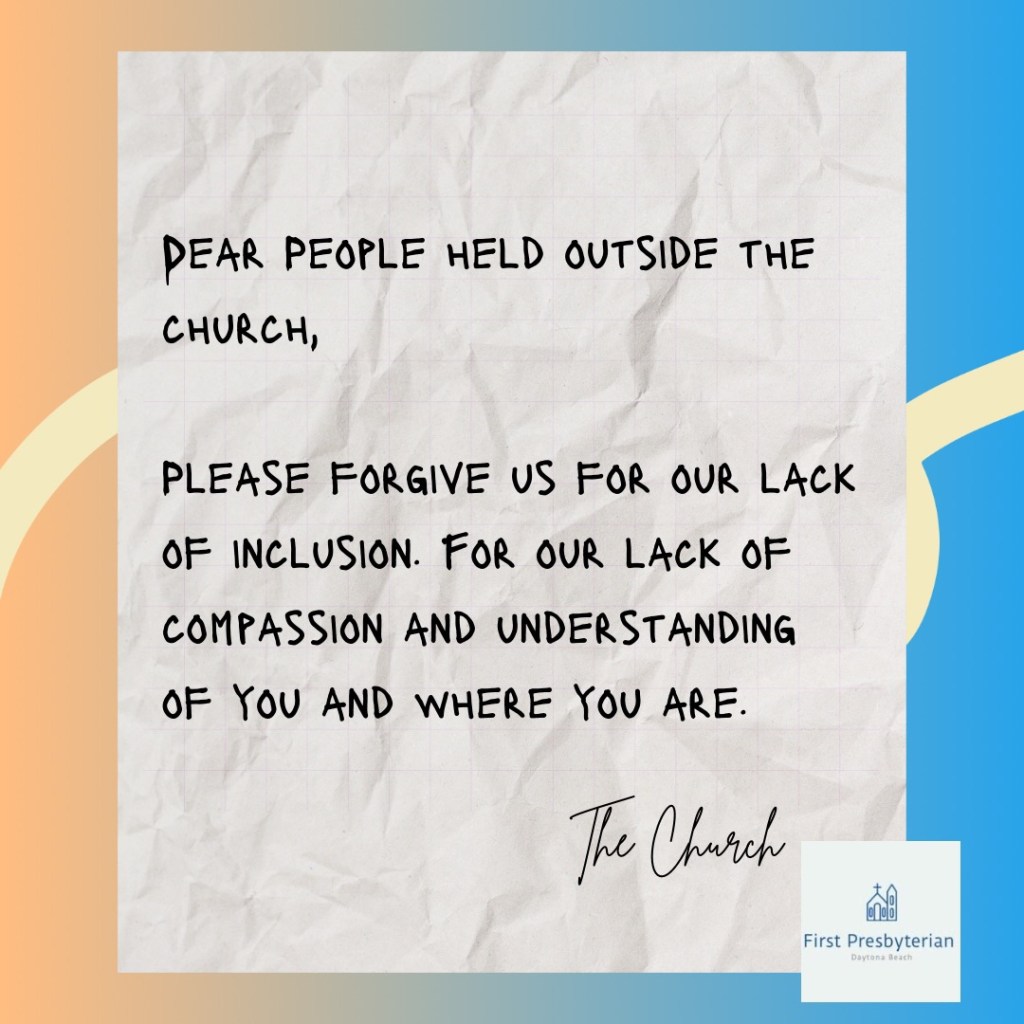 DEAR PEOPLE HELD OUTSIDE THE
CHURCH,
PLEASE FORGIVE US FOR OUR LACK
OF INCLUSION. FOR OUR LACK OF
COMPASSION AND UNDERSTANDING
OF YOU AND WHERE YOU ARE.
The Church
First Presbyterian
Daytona Beach